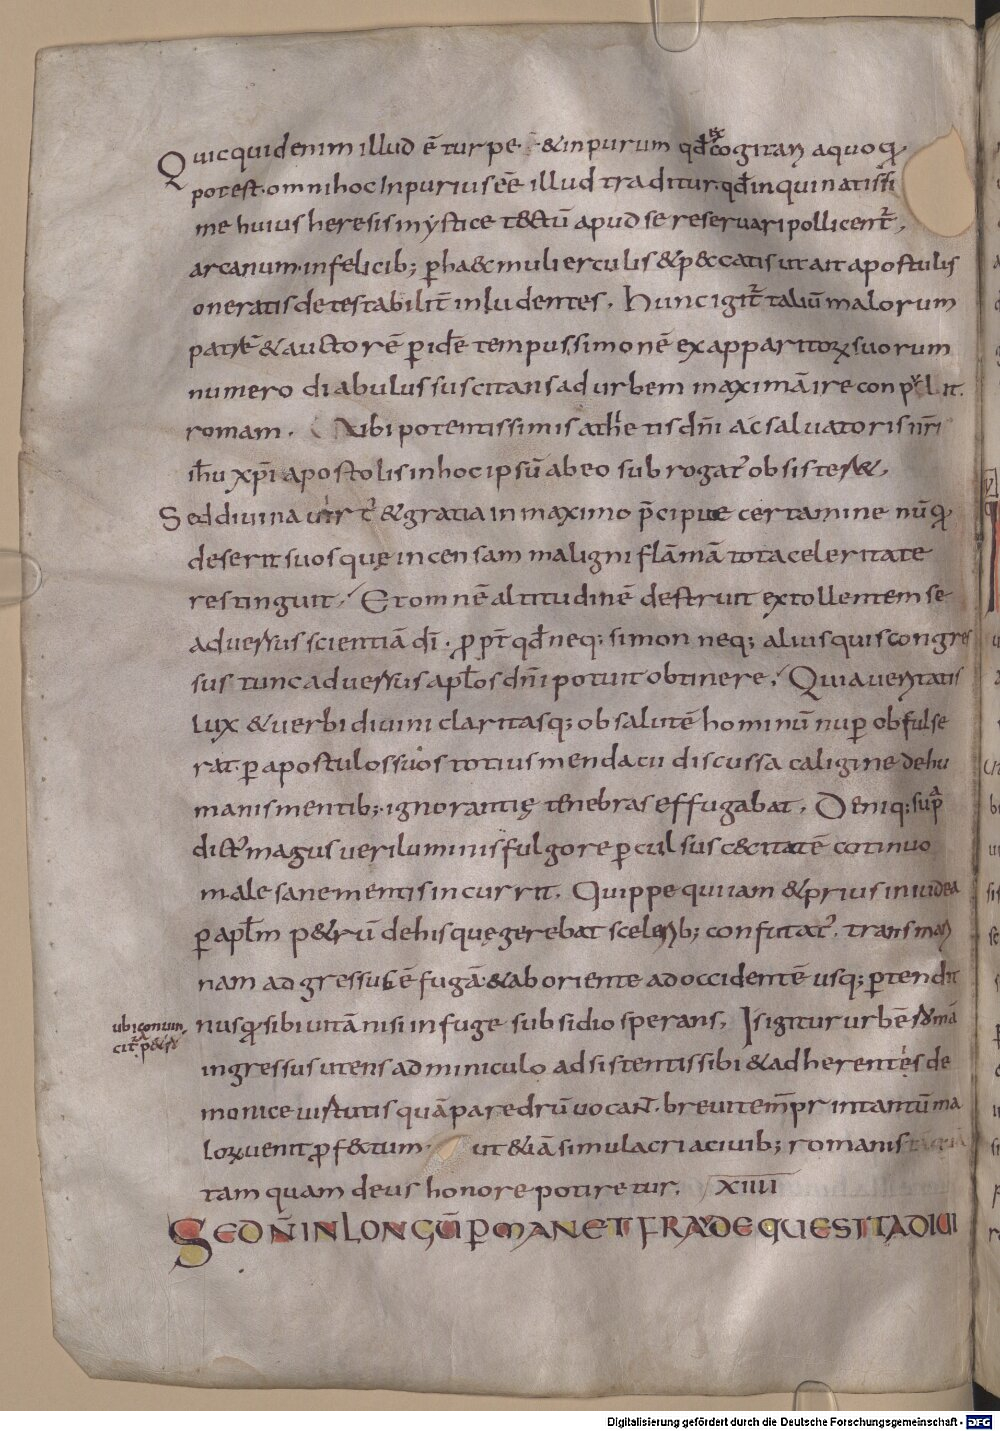 Quicquid enim illud ē turpe & inpurum qđ excogitari a quoq̨
potest omni hoc Inpurius eē illud traditur qđ inquinatissi
me huius heresis mystice tectū apud se reservari pollicent̄.
arcanum infelicib; p̄hac & mulierculis & peccatis ut ait apostulis
oneratis detestabilit̄ inludentes. Hunc igit̄ taliū malorum
patrē & auctorē p̄ idē tempus simonē ex apparitoꝝ suorum
numero diabulus suscitans ad urbem maximā ire
romam. Ubi potentissimis athletis dn̄i ac salvatoris nr̄i
ih̄u xp̄i apostolis in hoc ipsū ab eo subrogat̄ obsister&.
Sed divina & gratia in maximo p̄cipue certamine nūq̨
deserit suos quę incensam maligni flāmā tota celeritate
restinguit. Et omnē altitudinē destruit extollentem se
adversus scientiā dī. ꝓpt̄ qđ neq; simon neq; alius quis congres
sus tunc adversus apłos dn̄i potuit obtinere. Quia veritatis
lux & verbi divini claritasq; ob salutē hominū nuꝑ obfulse
rat ꝑ apostulos suos totius mendacii discussa caligine de hu
manis mentib; ignorantię tenebras effugabat. Deniq; supᵃ
dict̄ magus veri luminis fulgore ꝑculsus c&citatē cotinuo
male sane mentis incurrit. Quippe qui iam & prius in iudea
ꝑ apłm p&rū de his quę gerebat sceleribͅ; confutat̄. trans mari
nam adgressus ē fugā & ab oriente ad occidentē usq; ꝑtendit
nusq̨ sibi vitā nisi in fuge subsidio sperans. Is igitur urbē romā
ubi conuin,
cit̄ a p&ro
ingressus utens adminiculo adsistentis sibi & adherentes de
monice virtutis quā paredrū vocant. brevi temp̄r in tantū ma
loꝝ venit ꝓfectum ut &iā simulacri a civib; romanis
tam quam deus honore potiretur. XIIII
SED N̄ IN LONGŪ ꝑMANET FRAVDE QUESITA DICI
Digitalisierung gefördert durch die Deutsche Forschungsgemeinschaft - DFG